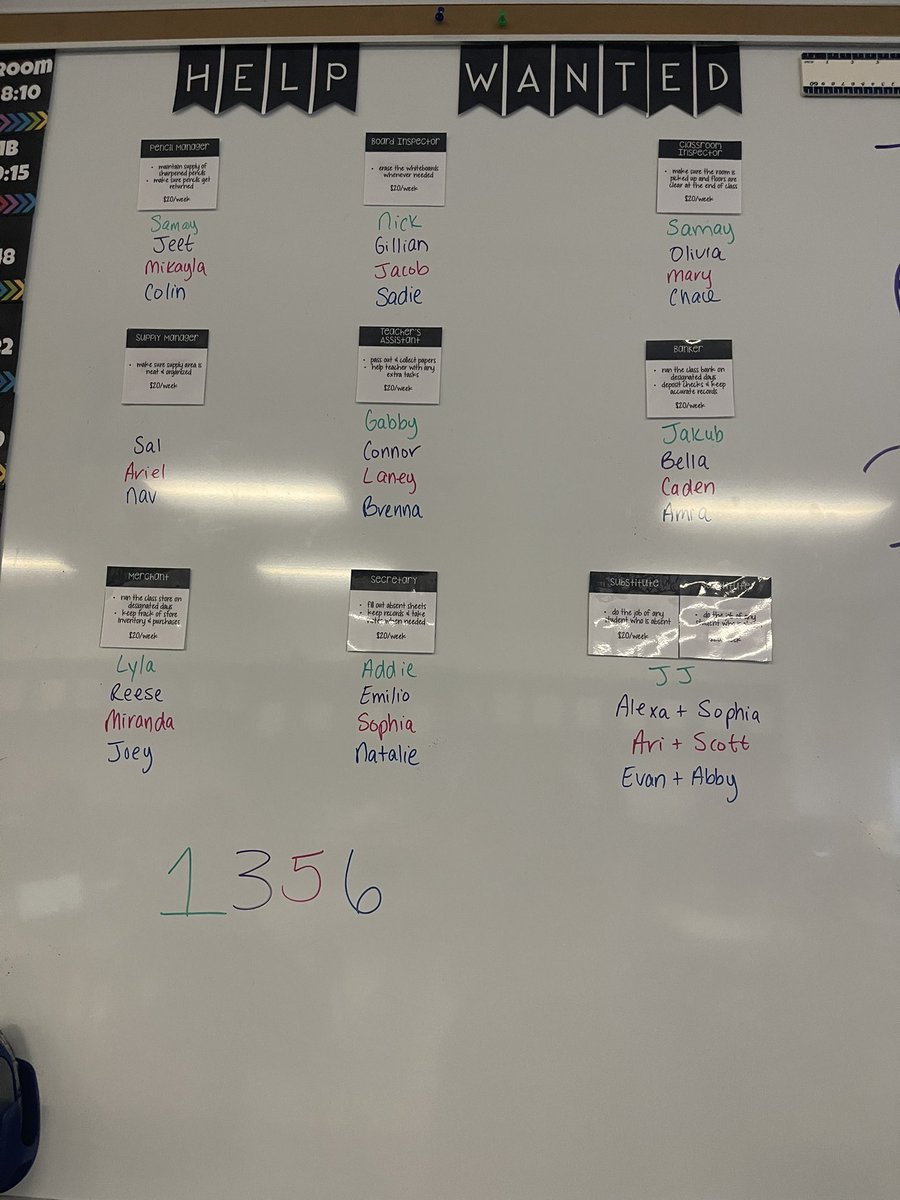 ROOM
8:10
HELP WANTED
Pencil Manager
• maintain supply of
sharpened pencils
• make sure pencils get
returned
$20/week
Samay
Jeet
Mikayla
Colin
Board Inspector
• erase the whiteboards
whenever needed
$20/week
Nick
Gillian
Jacob
Sadie
Classroom
Inspector
• make sure the room is
picked up and floors are
clear at the end of class
$20/week
Samay
Olivia
Mary
Chace
Supply Manager
• make sure supply area is
neat & organized
$20/week
Sal
Ariel
Nav
Teacher's
Assistant
• pass out & collect papers
• help teacher with any
extra tasks
$20/week
Gabby
Connor
Laney
Brenna
Banker
• run the class bank on
designated days
• deposit checks & keep
accurate records
$20/week
Jakub
Bella
Caden
Amra
Merchant
• run the class store on
designated days
• keep track of store
inventory & purchases
$20/week
Lyla
Reese
Miranda
Joey
Secretary
• fill out absent sheets
• keep records & take
notes when needed
$20/week
Addie
Emilio
Sophia
Natalie
Substitute
• do the job of any
student who is absent
$20/week
• do the job of any
student who is
JJ
Alexa + Sophia
Ari + Scott
Evan + Abby
1 3 5 6